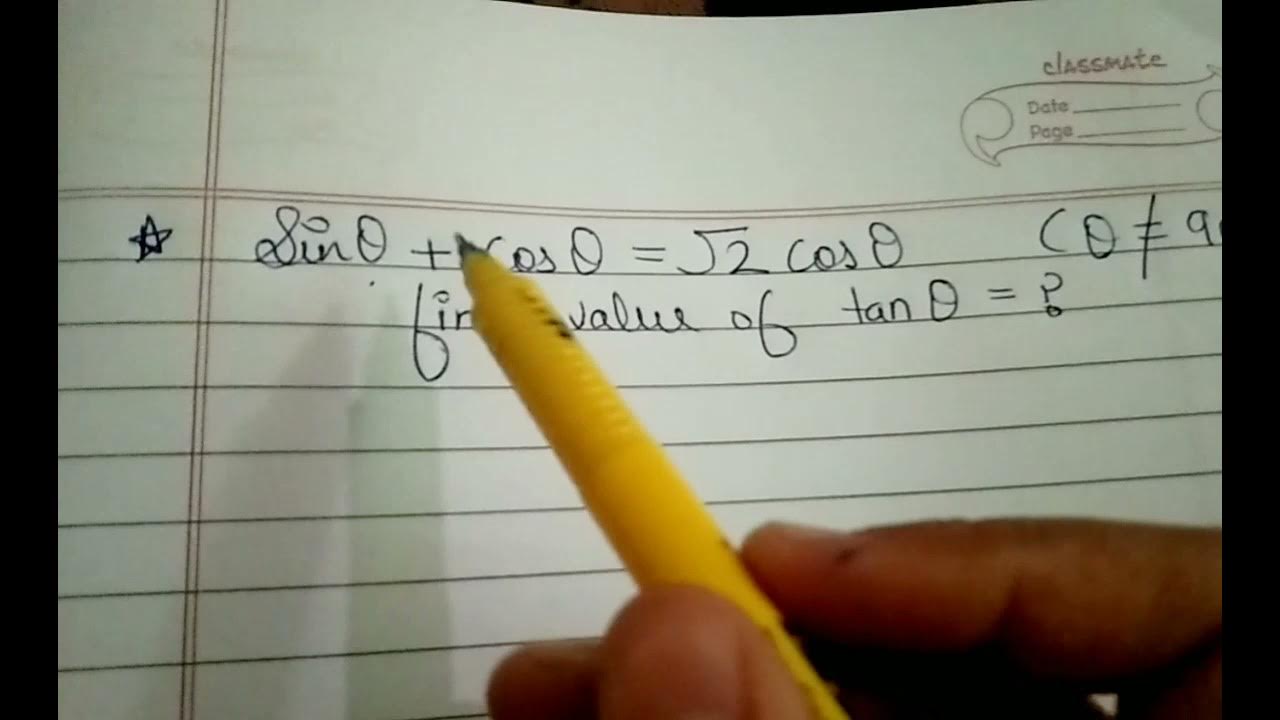 classmate
Date
Page
Sinθ + cosθ = √2 cosθ (θ ≠
value of tanθ = ?